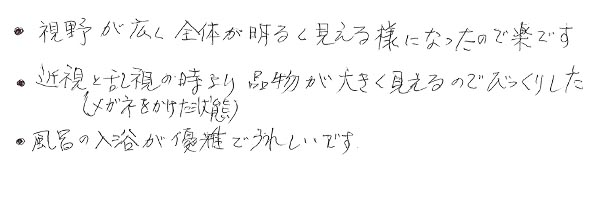 • 視野が広く全体が明るく見える様になったので楽です
• 近視と乱視の時より品物が大きく見えるのでびっくりした
(メガネをかけた状態)
• 風呂の入浴が優雅でうれしいです.